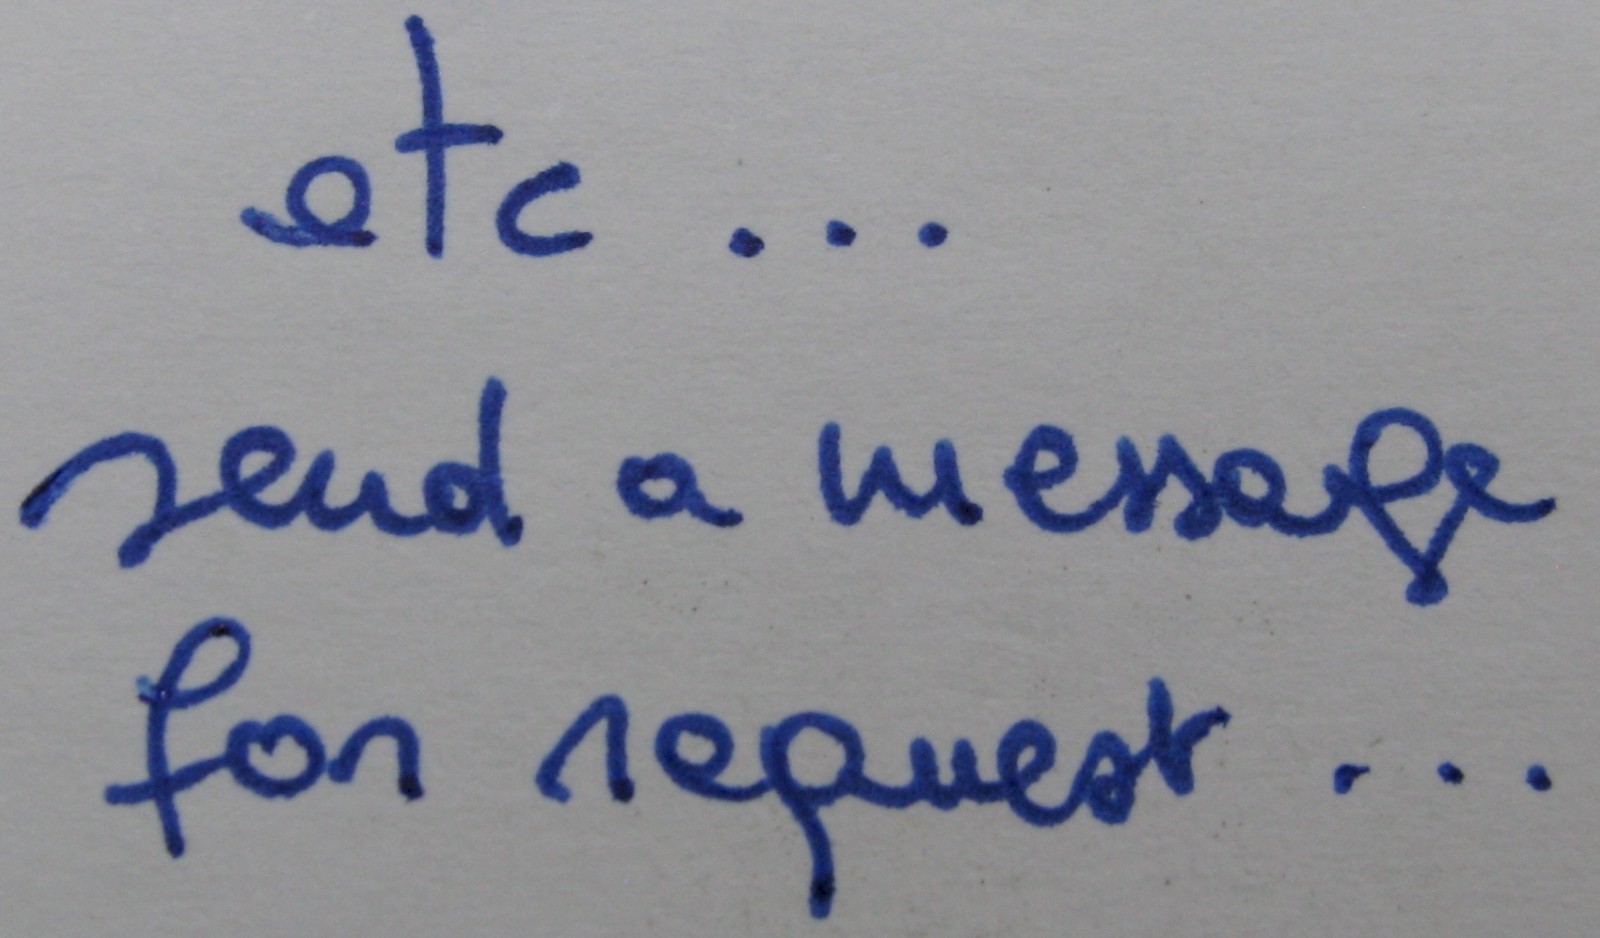 etc ...
send a message
for request ...